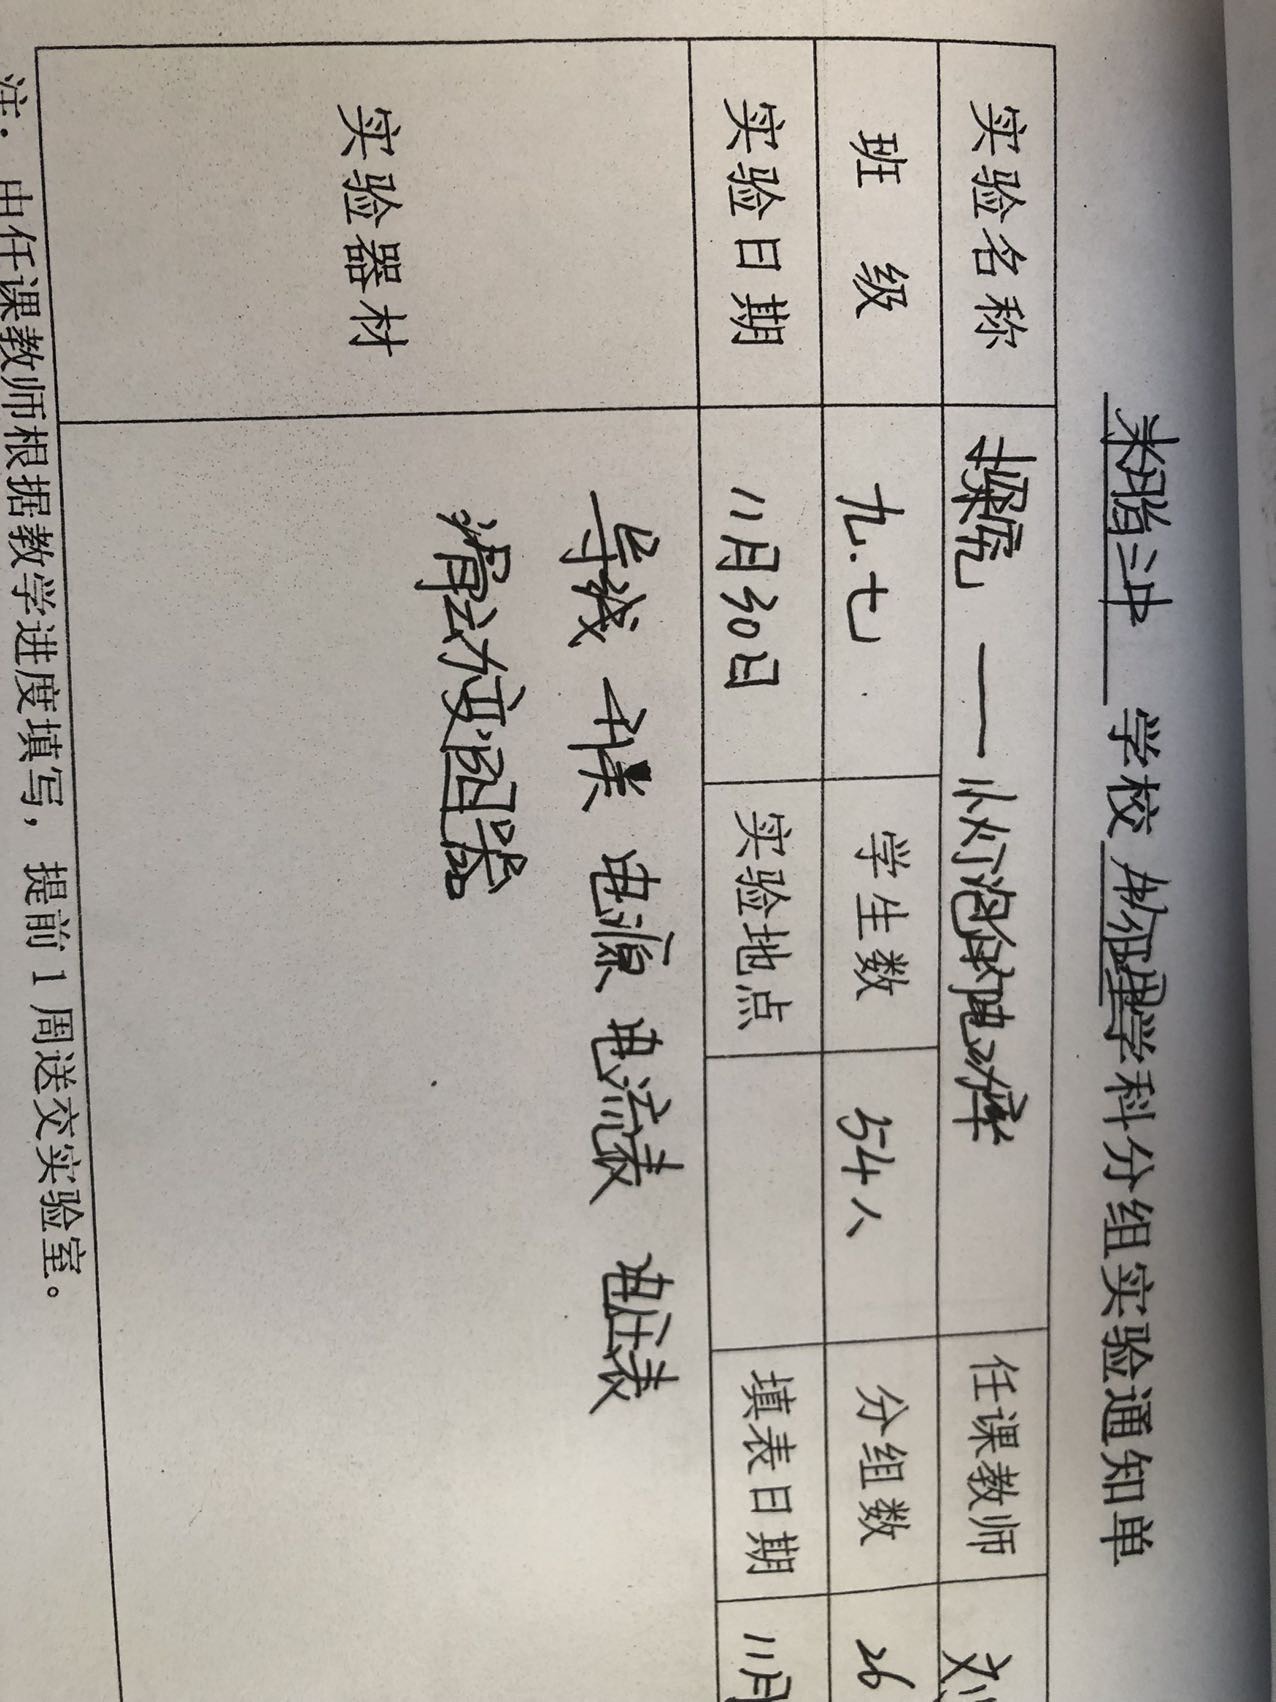 米脂三中 学校 物理 学科分组实验通知单
实验名称 探究——灯泡的电功率 任课教师 刘
班 级 九.七 学生数 54人 分组数 26
实验日期 11月30日 实验地点 填表日期 11月
实验器材 导线 开关 电源 电流表 电压表
滑动变阻器
注：由任课教师根据教学进度填写，提前1周送交实验室。